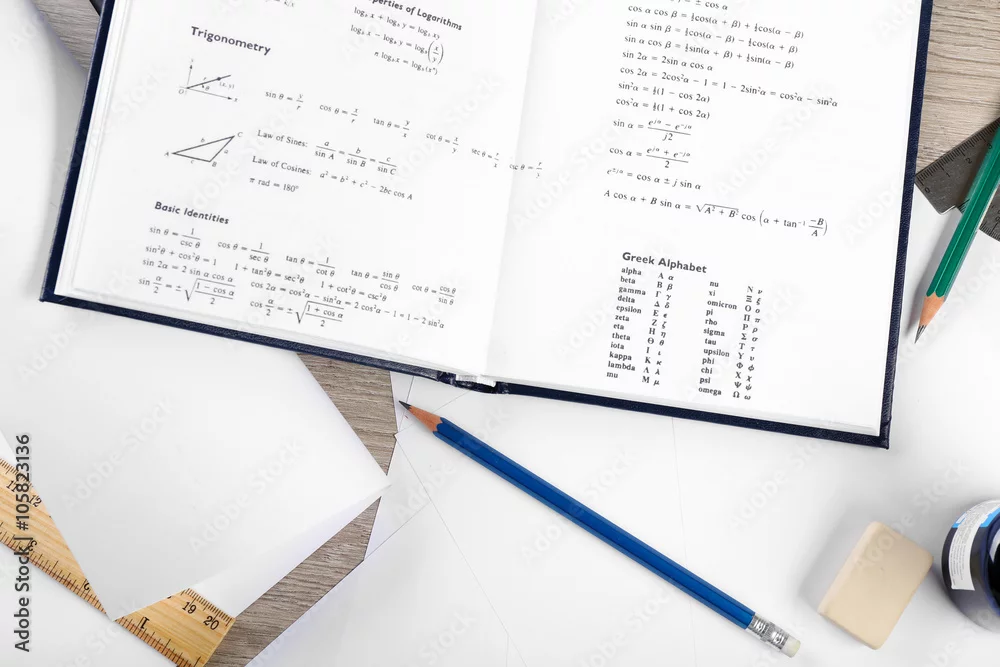 perties of Logarithms
logb x + logb y = logb xy
logb x − logb y = logb (x/y)
n logb x = logb (xⁿ)
Trigonometry
y
r
(x, y)
θ
O
x
sin θ = y/r cos θ = x/r tan θ = y/x cot θ = x/y sec θ = r/x csc θ = r/y
b
C
A
c
B
a
Law of Sines: a/sin A = b/sin B = c/sin C
Law of Cosines: a² = b² + c² − 2bc cos A
π rad = 180°
Basic Identities
sin θ = 1/csc θ cos θ = 1/sec θ tan θ = 1/cot θ tan θ = sin θ/cos θ cot θ = cos θ/sin θ
sin²θ + cos²θ = 1 1 + tan²θ = sec²θ 1 + cot²θ = csc²θ
sin 2α = 2 sin α cos α cos 2α = cos²α − sin²α = 2 cos²α − 1 = 1 − 2 sin²α
sin α/2 = ±√(1 − cos α/2) cos α/2 = ±√(1 + cos α/2)
cos α cos β = ½cos(α + β) + ½cos(α − β)
sin α sin β = ½cos(α − β) − ½cos(α + β)
sin α cos β = ½sin(α + β) + ½sin(α − β)
sin 2α = 2sin α cos α
cos 2α = 2cos²α − 1 = 1 − 2sin²α = cos²α − sin²α
sin²α = ½(1 − cos 2α)
cos²α = ½(1 + cos 2α)
sin α = (e^jα − e^−jα)/j2
cos α = (e^jα + e^−jα)/2
e^±jα = cos α ± j sin α
A cos α + B sin α = √(A² + B²) cos (α + tan⁻¹ −B/A)
Greek Alphabet
alpha Α α
beta Β β
gamma Γ γ
delta Δ δ
epsilon Ε ε
zeta Ζ ζ
eta Η η
theta Θ θ
iota Ι ι
kappa Κ κ
lambda Λ λ
mu Μ μ
nu Ν ν
xi Ξ ξ
omicron Ο ο
pi Π π
rho Ρ ρ
sigma Σ σ
tau Τ τ
upsilon Υ υ
phi Φ φ
chi Χ χ
psi Ψ ψ
omega Ω ω
19 20
Adobe Stock | #105823136